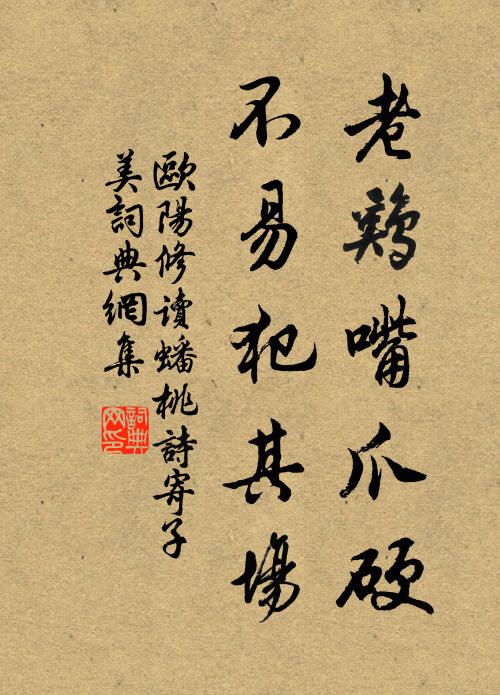 老鷄嘴爪硬
不易犯其場
歐陽修讀蟠桃詩寄子
美詞典網集
詞典
网印